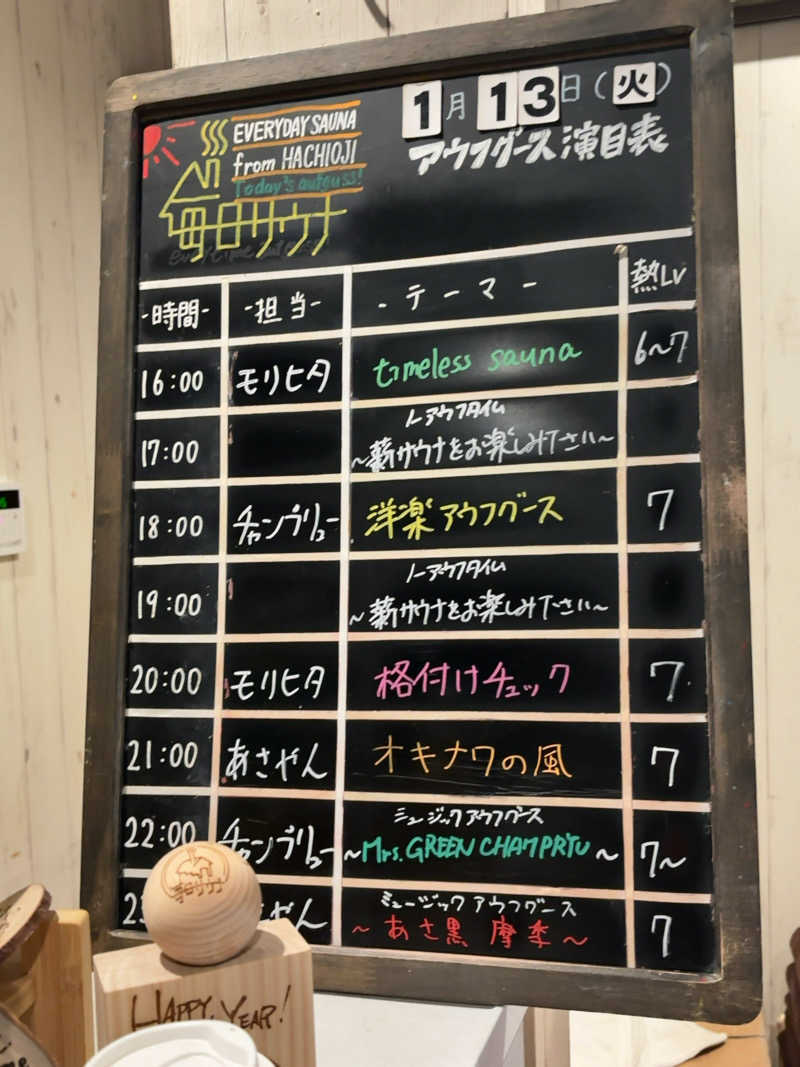 1月13日(火)
アウフグース演目表
EVERYDAY SAUNA
from HACHIOJI
Today's aufguss!
毎日サウナ
-時間- -担当- -テーマ- 熱Lv
16:00 モリヒタ timeless sauna 6~7
ノーアウフタイム
17:00 ~薪サウナをお楽しみ下さい~
18:00 チャンプリュー 洋楽アウフグース 7
ノーアウフタイム
19:00 ~薪サウナをお楽しみ下さい~
20:00 モリヒタ 格付けチェック 7
21:00 あさやん オキナワの風 7
ミュージックアウフグース
22:00 チャンプリュー ~Mrs. GREEN CHAMPRYU~ 7~
ミュージックアウフグース
~あさ黒 摩季~ 7
HAPPY YEAR!